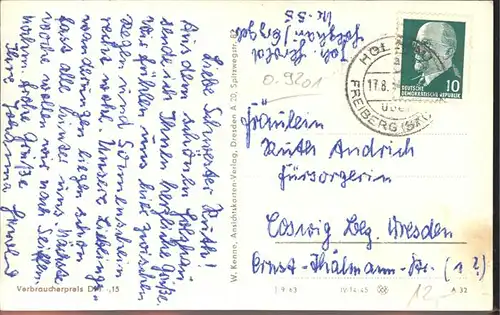 Joh. Herold
Holzhau / Erzgeb.
Nr. 55
0-9201
Liebe Schwester Ruth!
Aus dem schönen Holzhau
sende ich Ihnen herzliche Grüße.
Wir fühlen uns hier zwischen
Regen und Sonnenschein
recht wohl. Unsere Lieblings-
wanderungen liegen schon
fast alle hinter uns. Nächste
Woche wollen wir nach Seiffen
fahren. Frohe Grüße
Ihre Johanna Herold
Verbraucherpreis DM -,15
W. Kenne, Ansichtskarten-Verlag, Dresden A 20, Spitzwegstr. 62
HOL
17.8.
ÜBER
FREIBERG (SACHS)
10
DEUTSCHE
DEMOKRATISCHE REPUBLIK
Fräulein
Ruth Andrich
Fürsorgerin
Coswig Bez. Dresden
Ernst-Thälmann-Str. (1?)
9/63 IV-14-45 A 32
12,-